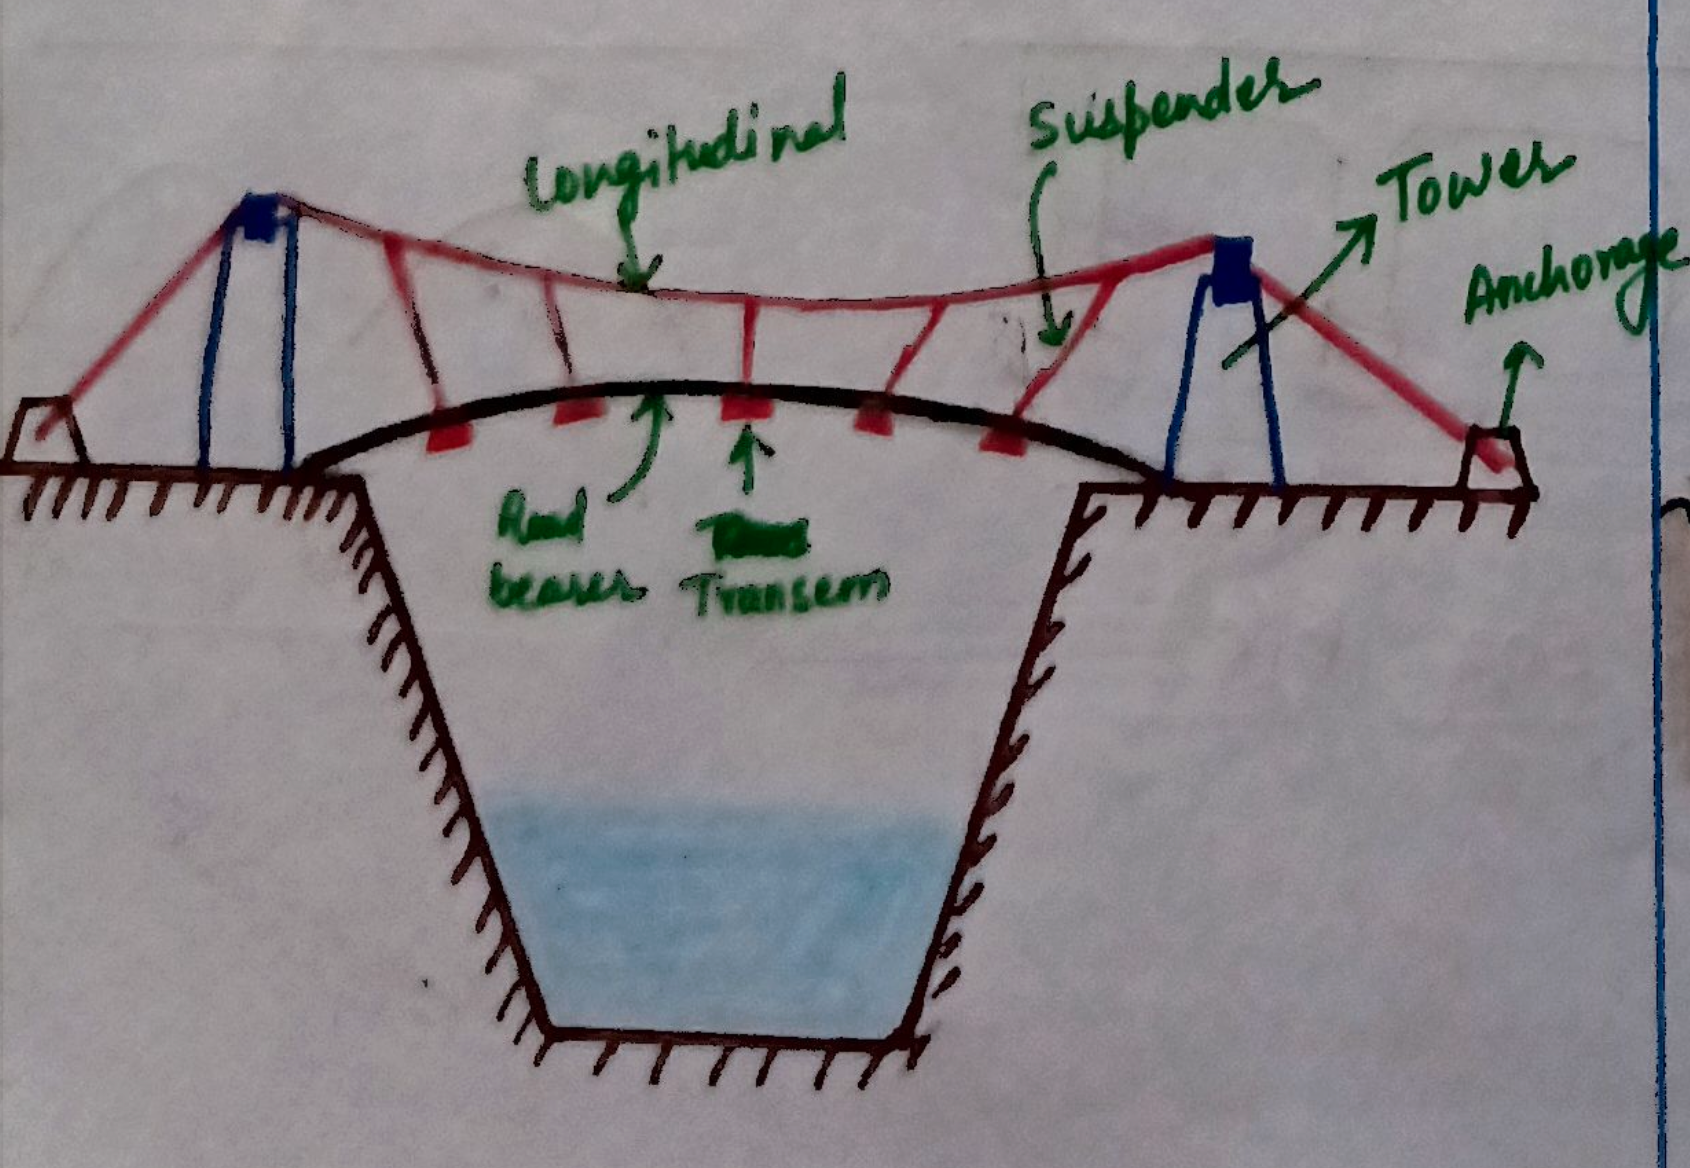 Longitudinal
Suspender
Tower
Anchorage
Road
bearer
Transom